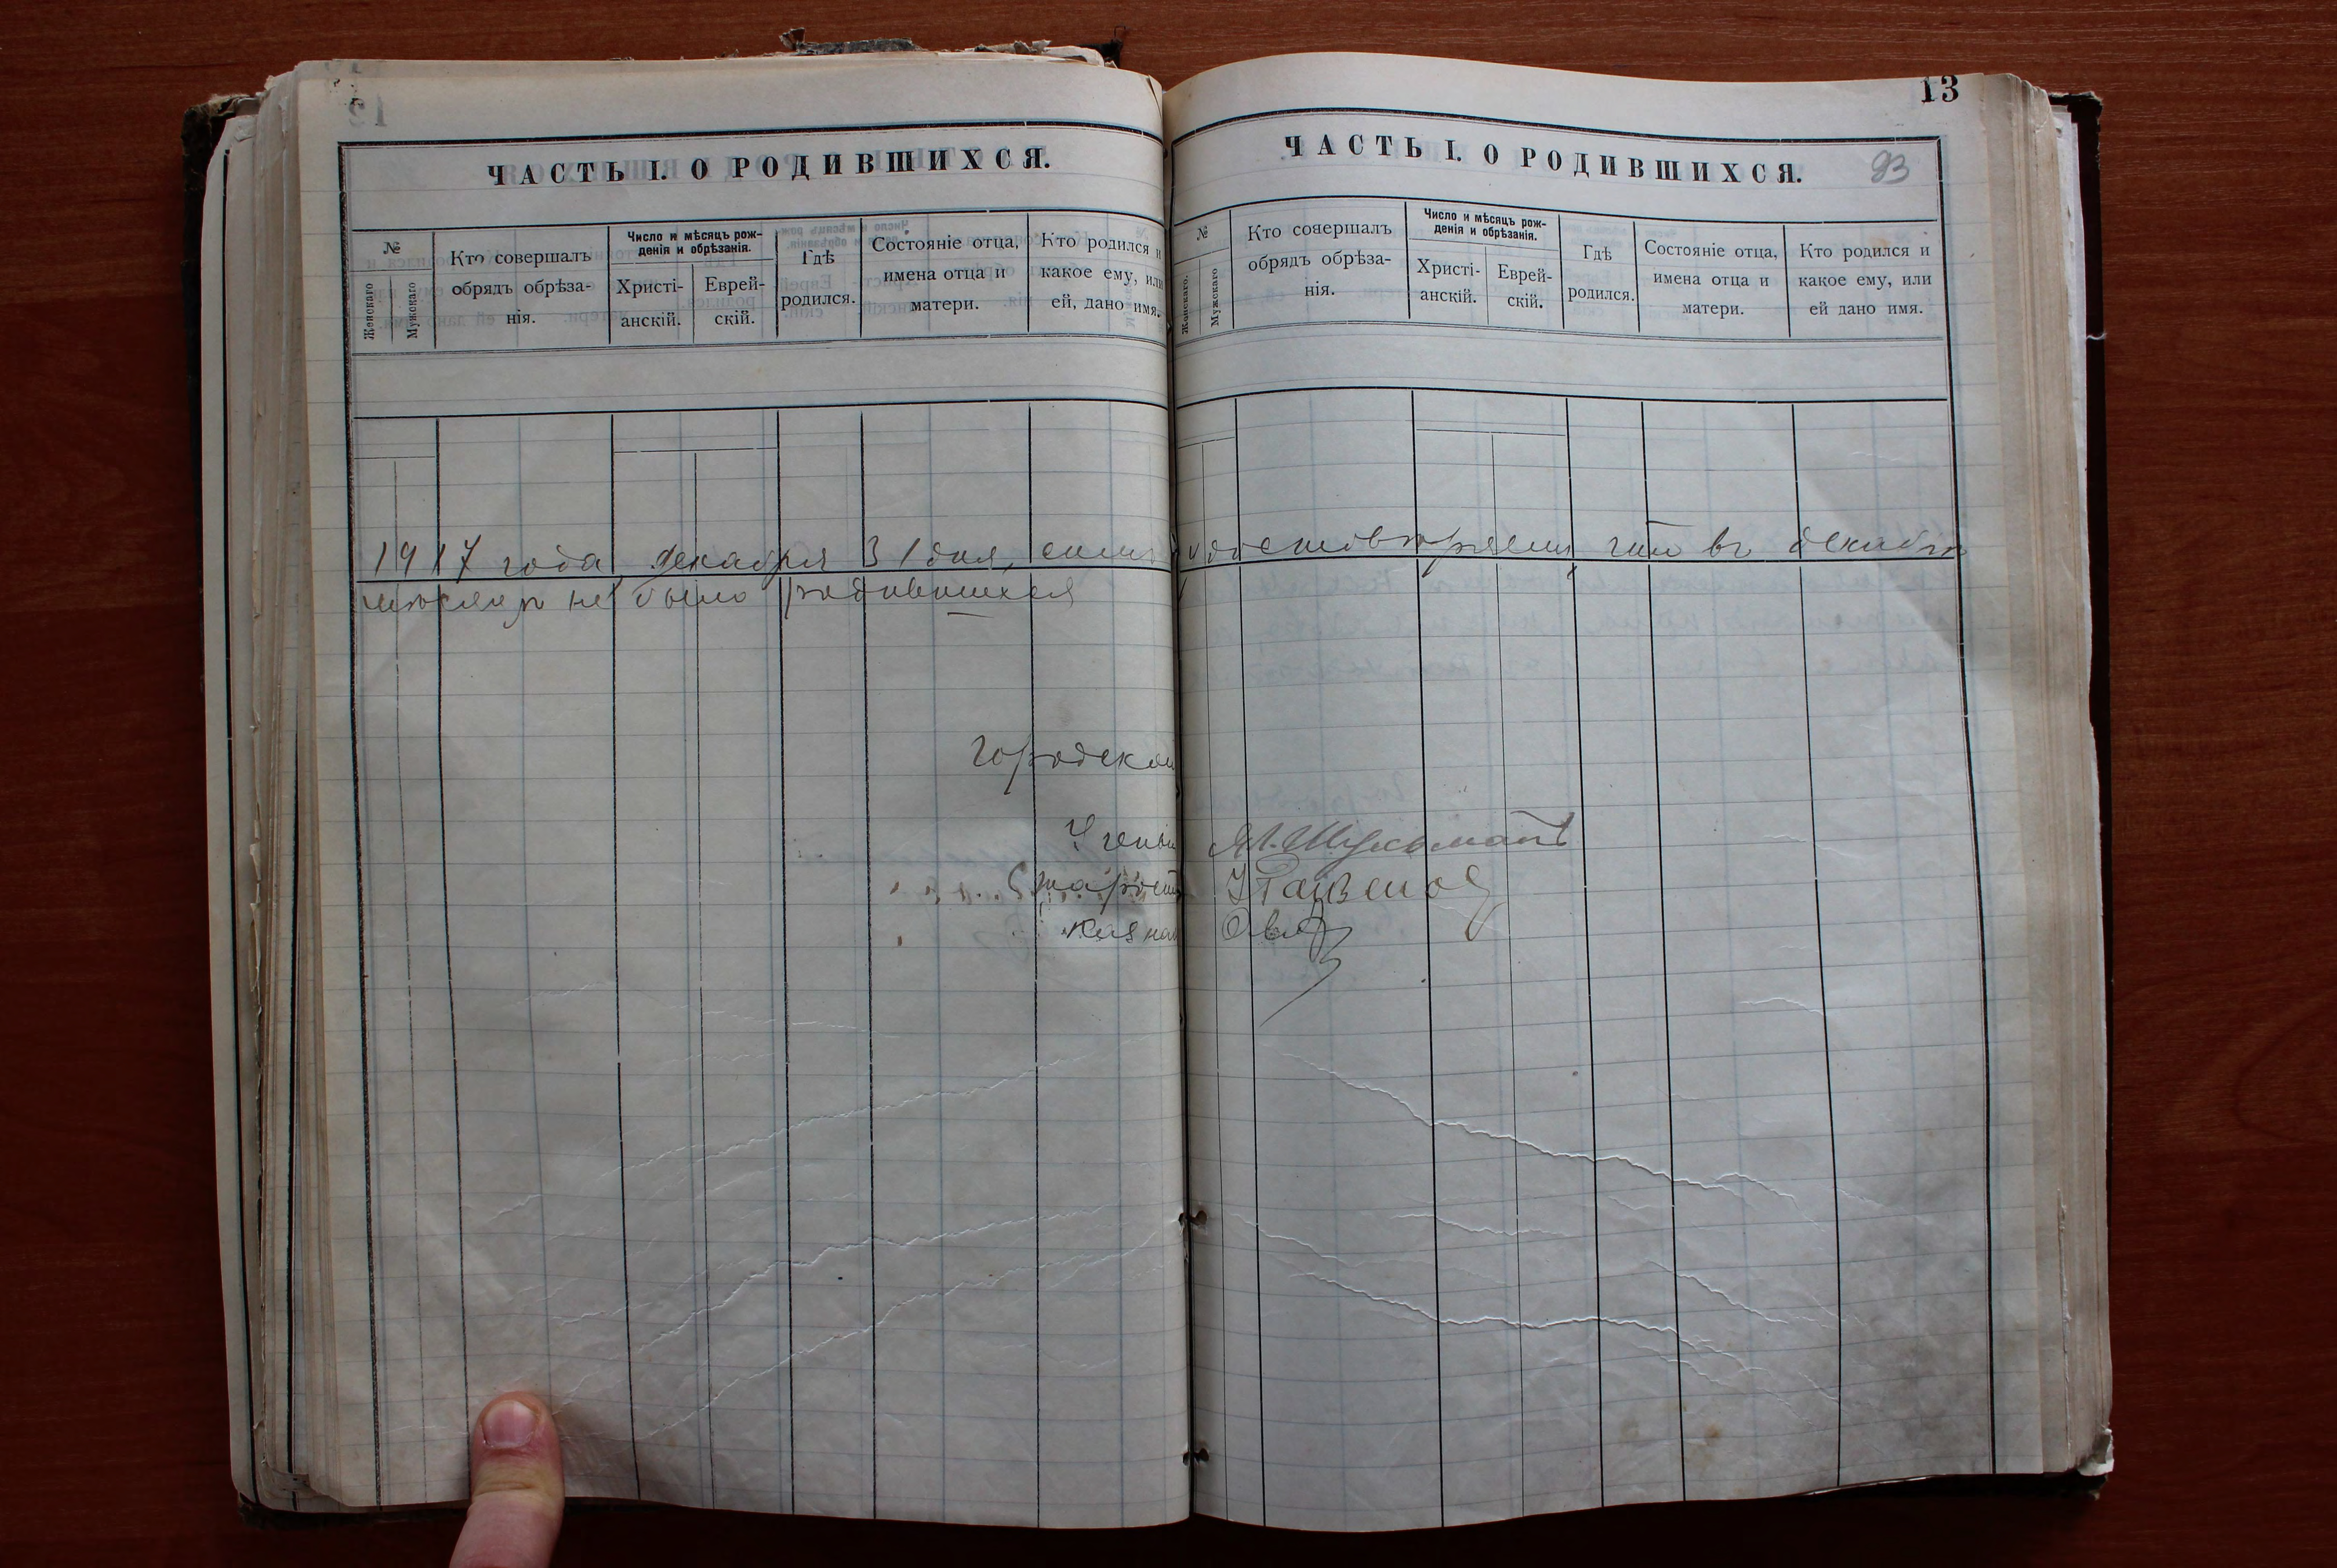 13
ЧАСТЬ I. О РОДИВШИХСЯ.
№
Женскаго
Мужскаго
Кто совершалъ
обрядъ обрѣза-
нія.
Число и мѣсяцъ рож-
денія и обрѣзанія.
Христі-
анскій.
Еврей-
скій.
Гдѣ
родился.
Состояніе отца,
имена отца и
матери.
Кто родился и
какое ему, или
ей, дано имя.
ЧАСТЬ I. О РОДИВШИХСЯ.
93
№
Женскаго.
Мужскаго
Кто совершалъ
обрядъ обрѣза-
нія.
Число и мѣсяцъ рож-
денія и обрѣзанія.
Христі-
анскій.
Еврей-
скій.
Гдѣ
родился.
Состояніе отца,
имена отца и
матери.
Кто родился и
какое ему, или
ей дано имя.
1917 года декабря 31 дня, симъ удостовѣряемъ что въ декабрѣ
мѣсяцѣ не было родившихся
Городской
Ученый
Староста
Казнач